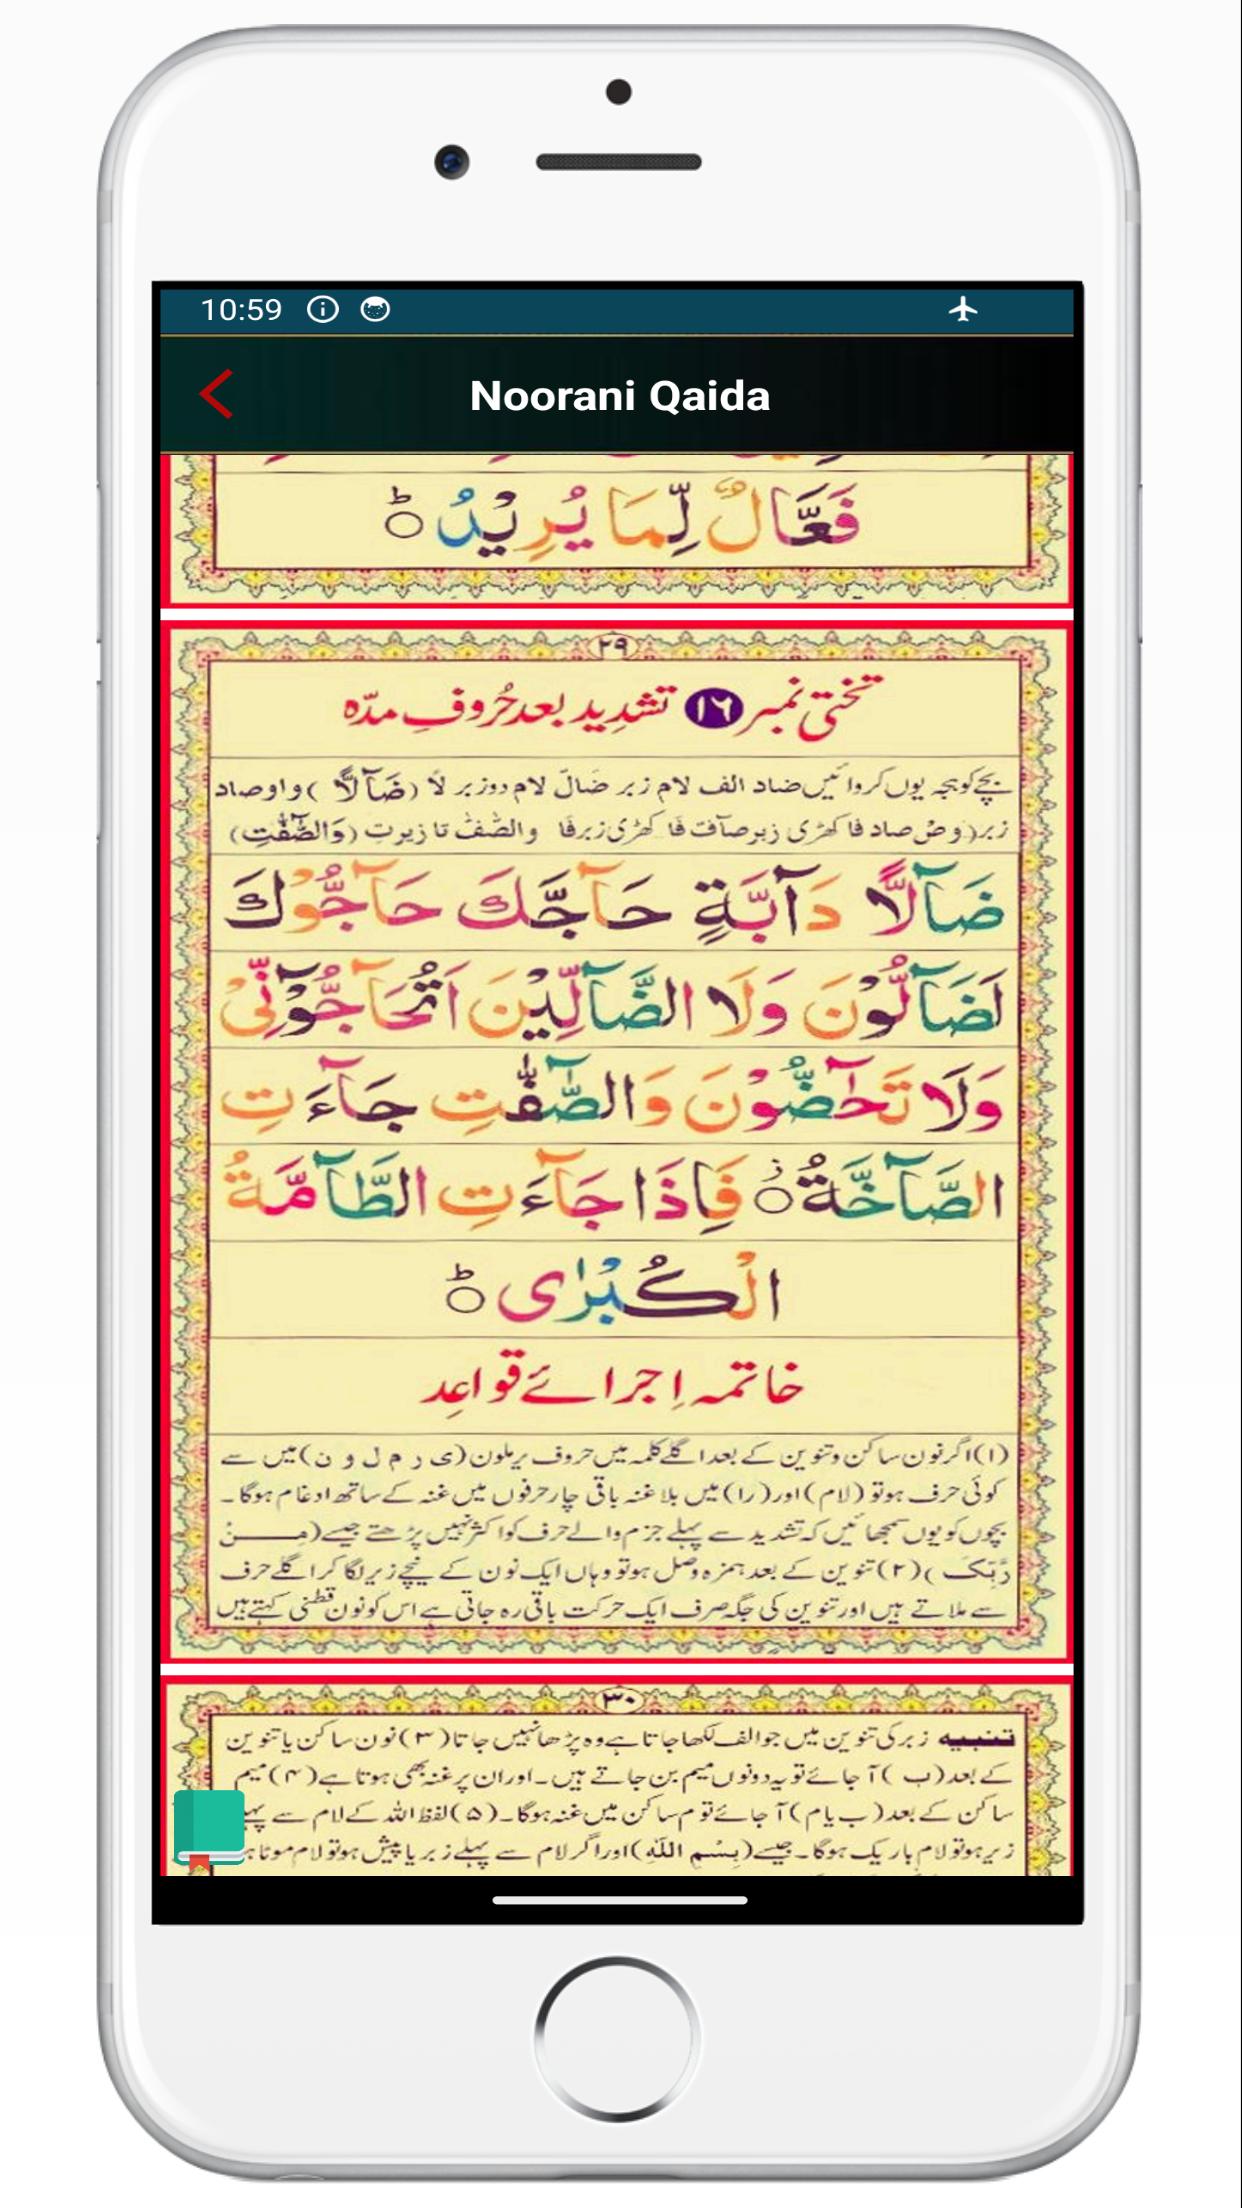 10:59
Noorani Qaida
فَعَّالٌ لِّمَا يُرِيْدُ ۝ؕ
٢٩
تختی نمبر ١٦ تشدِید بعد حُروفِ مدّہ
بچے کو ہجہ یوں کروائیں ضاد الف لام زبر ضَالّ لام دوزبر لًا (ضَآلًّا) واو صاد
زبر (وَصْ صاد فا کھڑی زبر صآفّ فَا کھڑی زبر فٰا والصّٰفّٰ تا زیر تِ (وَالصّٰٓفّٰتِ)
ضَآلًّا دَآبَّةٍ حَآجَّكَ حَآجُّوْكَ
لَضَآلُّوْنَ وَلَا الضَّآلِّيْنَ اَتُحَآجُّوْٓنِّيْ
وَلَا تَحٰٓضُّوْنَ وَالصّٰٓفّٰتِ جَآءَتِ
الصَّآخَّةُ ۝ؗ فَاِذَا جَآءَتِ الطَّآمَّةُ
الْكُبْرٰى ۝ؕ
خاتمہ اِجرائے قواعِد
(۱) اگر نون ساکن وتنوین کے بعد اگلے کلمہ میں حروف یرملون (ی ر م ل و ن) میں سے
کوئی حرف ہوتو (لام) اور (را) میں بلا غنہ باقی چار حرفوں میں غنہ کے ساتھ ادغام ہوگا۔
بچوں کو یوں سمجھائیں کہ تشدید سے پہلے جزم والے حرف کو اکثر نہیں پڑھتے جیسے (مِنْ
رَّبِّکَ) (۲) تنوین کے بعد ہمزہ وصل ہوتو وہاں ایک نون کے نیچے زیر لگا کر اگلے حرف
سے ملاتے ہیں اور تنوین کی جگہ صرف ایک حرکت باقی رہ جاتی ہے اس کو نون قطنی کہتے ہیں
٣٠
تنبیہ زبر کی تنوین میں جو الف لکھا جاتا ہے وہ پڑھا نہیں جاتا (۳) نون ساکن یا تنوین
کے بعد (ب) آ جائے تو یہ دونوں میم بن جاتے ہیں۔ اور ان پر غنہ بھی ہوتا ہے (۴) میم
ساکن کے بعد (ب یا م) آ جائے تو م ساکن میں غنہ ہوگا۔ (۵) لفظ اللہ کے لام سے
زیر ہوتو لام باریک ہوگا۔ جیسے (بِسْمِ اللّٰهِ) اور اگر لام سے پہلے زبر یا پیش ہوتو لام موٹا